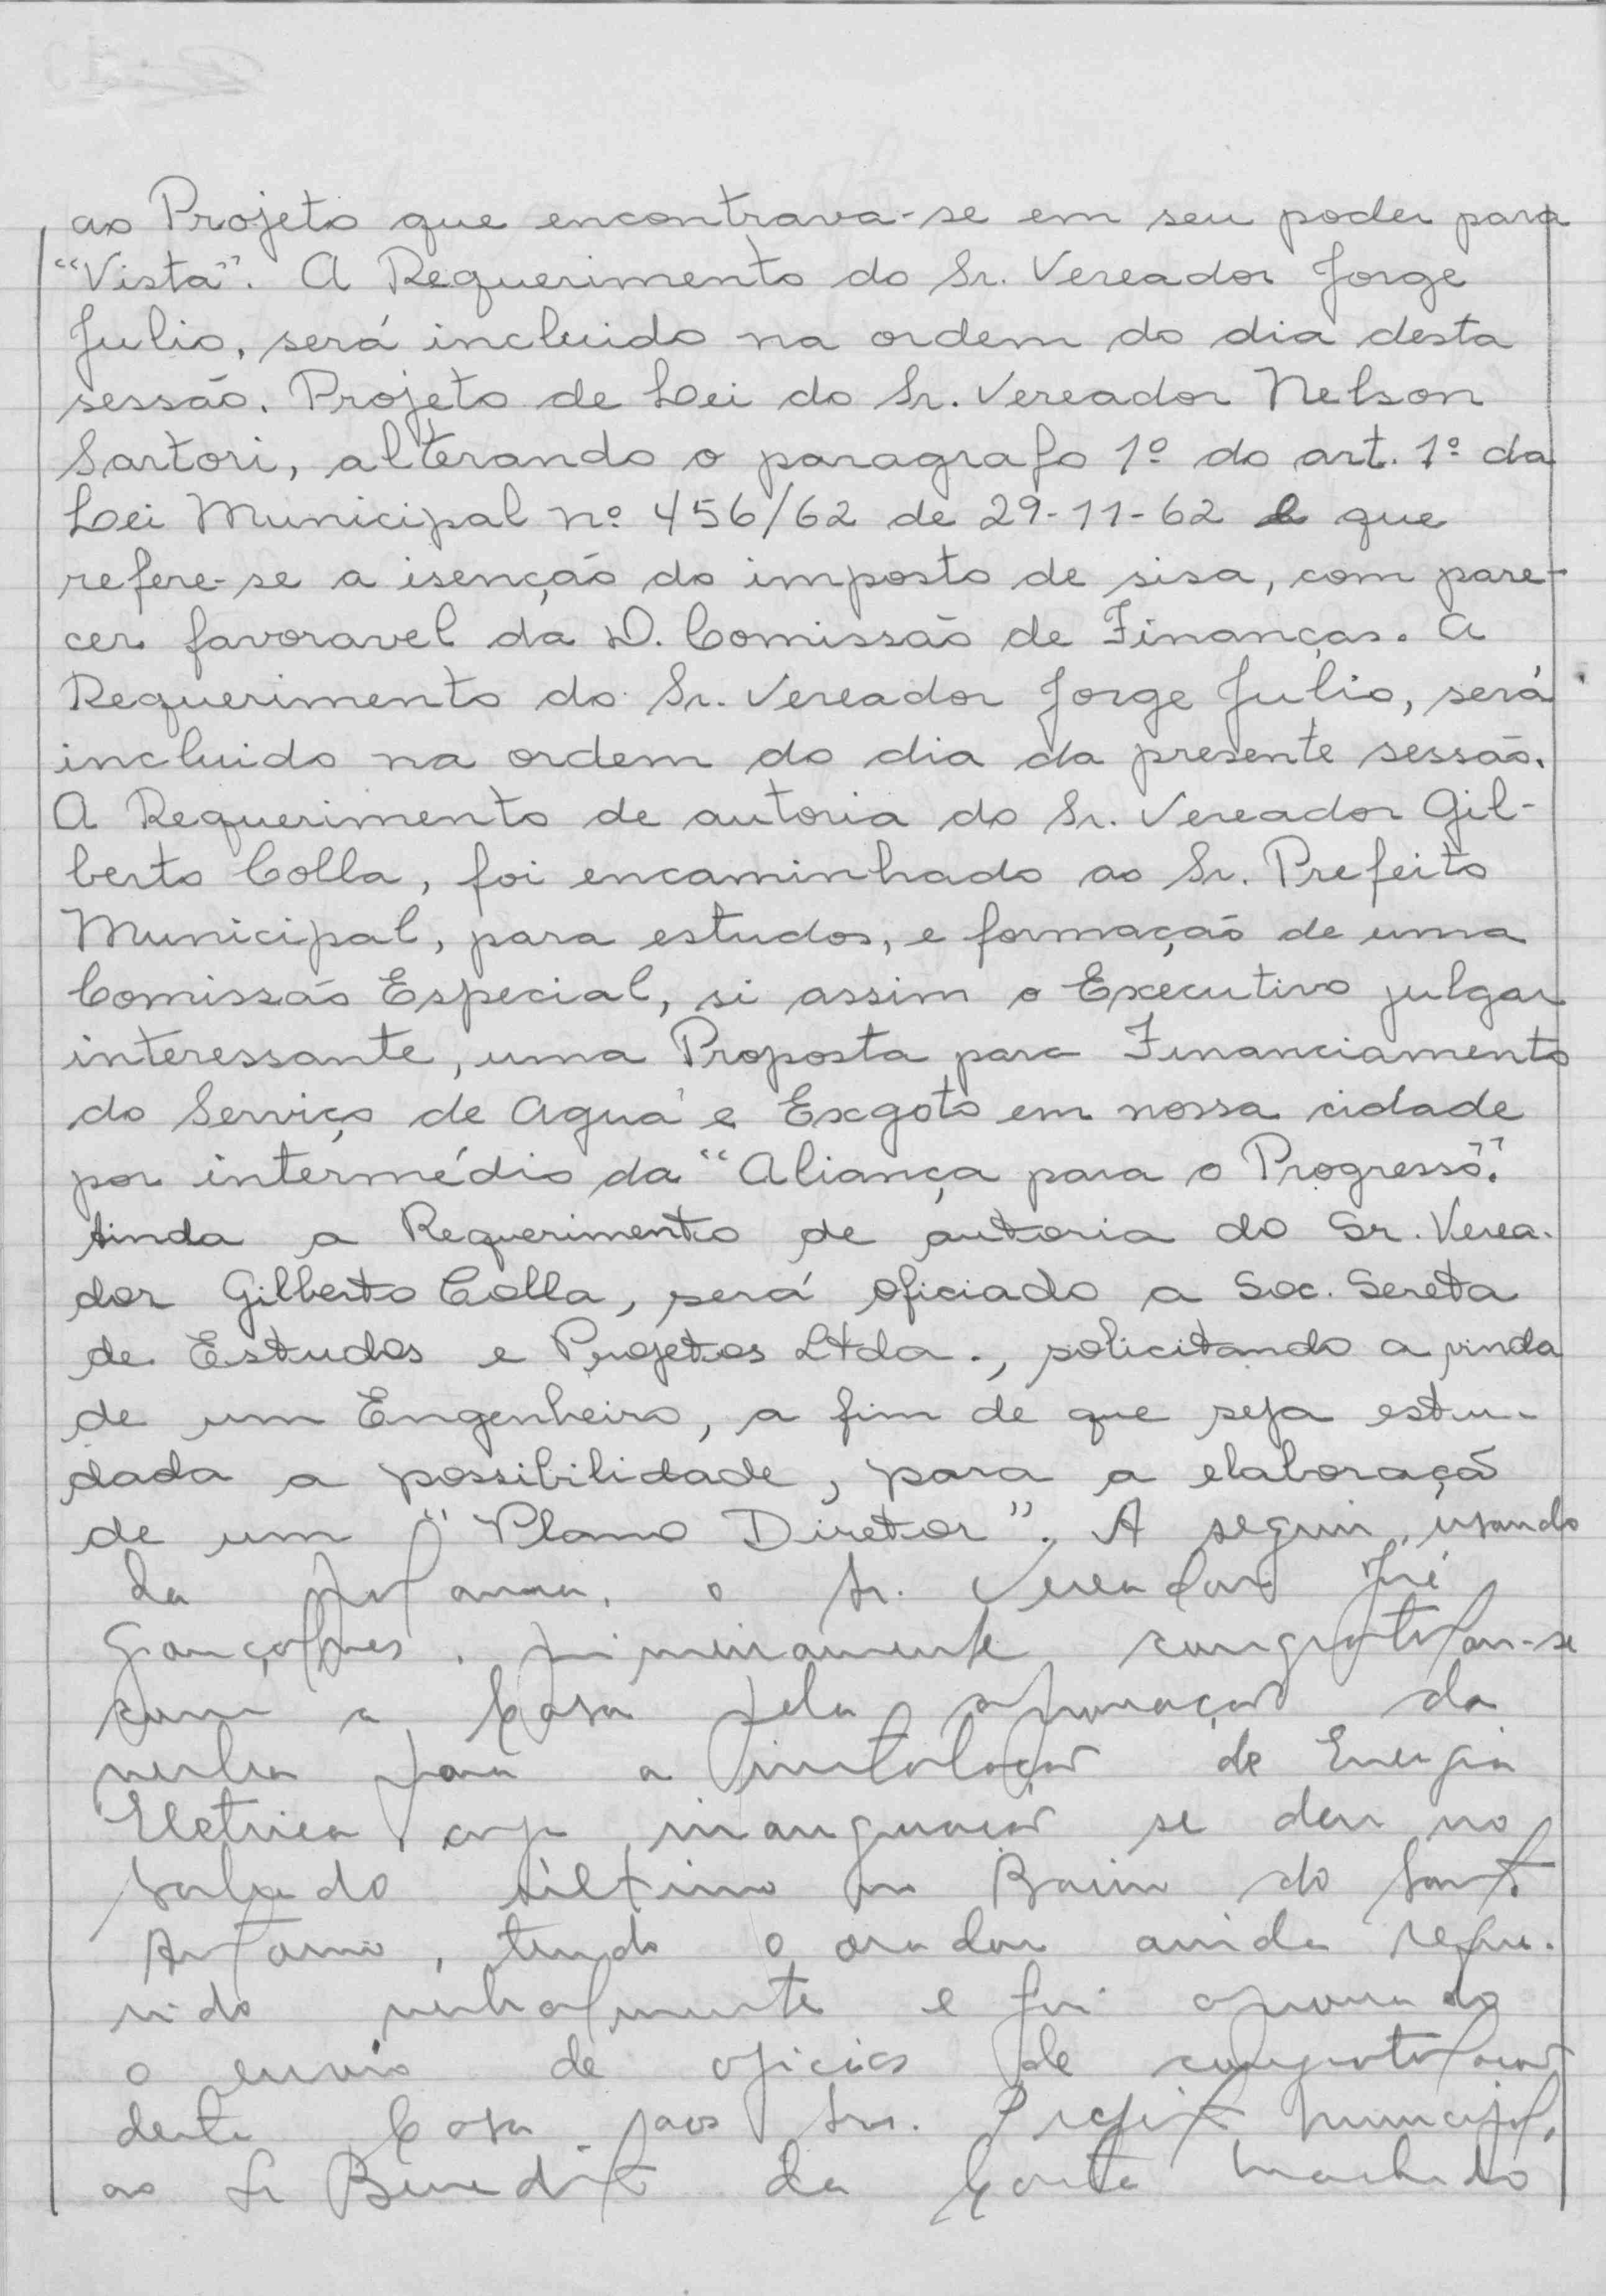 ao Projeto que encontrava-se em seu poder para
"Vista". A Requerimento do Sr. Vereador Jorge
Julio, será incluido na ordem do dia desta
sessão. Projeto de Lei do Sr. Vereador Nelson
Sartori, alterando o paragrafo 1º do art. 1º da
Lei Municipal nº 456/62 de 29-11-62 e que
refere-se a isenção do imposto de sisa, com pare-
cer favoravel da D. Comissão de Finanças. A
Requerimento do Sr. Vereador Jorge Julio, será
incluido na ordem do dia da presente sessão.
A Requerimento de autoria do Sr. Vereador Gil-
berto Colla, foi encaminhado ao Sr. Prefeito
Municipal, para estudos, e formação de uma
Comissão Especial, si assim o Executivo julgar
interessante, uma Proposta para Financiamento
do Serviço de Agua e Exgoto em nossa cidade
por intermédio da "Aliança para o Progresso".
Ainda a Requerimento de autoria do Sr. Verea-
dor Gilberto Colla, será oficiado a Soc. Sereta
de Estudos e Projetos Ltda., solicitando a vinda
de um Engenheiro, a fim de que seja estu-
dada a possibilidade, para a elaboraçã
de um "Plano Diretor". A seguir, usando
da palavra, o Sr. Vereador José
Gonçalves, primeiramente congratulou-se
com a Casa pela aprovação da
verba para a instalação de Energia
Eletrica, cuja inauguração se deu no
sabado último no Bairro do Santo
Antonio, tendo o orador ainda reque-
rido verbalmente e foi aprovado
o envio de oficios de congratulações
desta Casa aos Srs. Prefeito Municipal,
ao Sr Benedito da Costa Machado